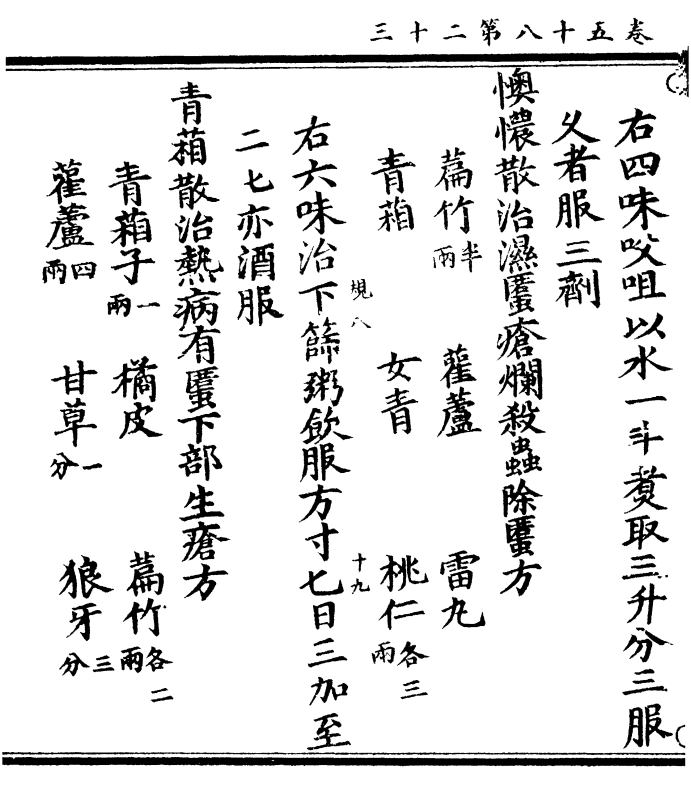 卷五十八第二十三
右四味㕮咀以水一斗煑取三升分三服
乆者服三劑
懊憹散治濕䘌瘡爛殺蟲除䘌方
萹竹半兩 雚蘆 雷丸
青葙 女青 桃仁各三兩
規八 十九
右六味治下篩粥飲服方寸匕日三加至
二匕亦酒服
青葙散治熱病有䘌下部生瘡方
青葙子一兩 橘皮 萹竹各二兩
雚蘆四兩 甘草一分 狼牙三分